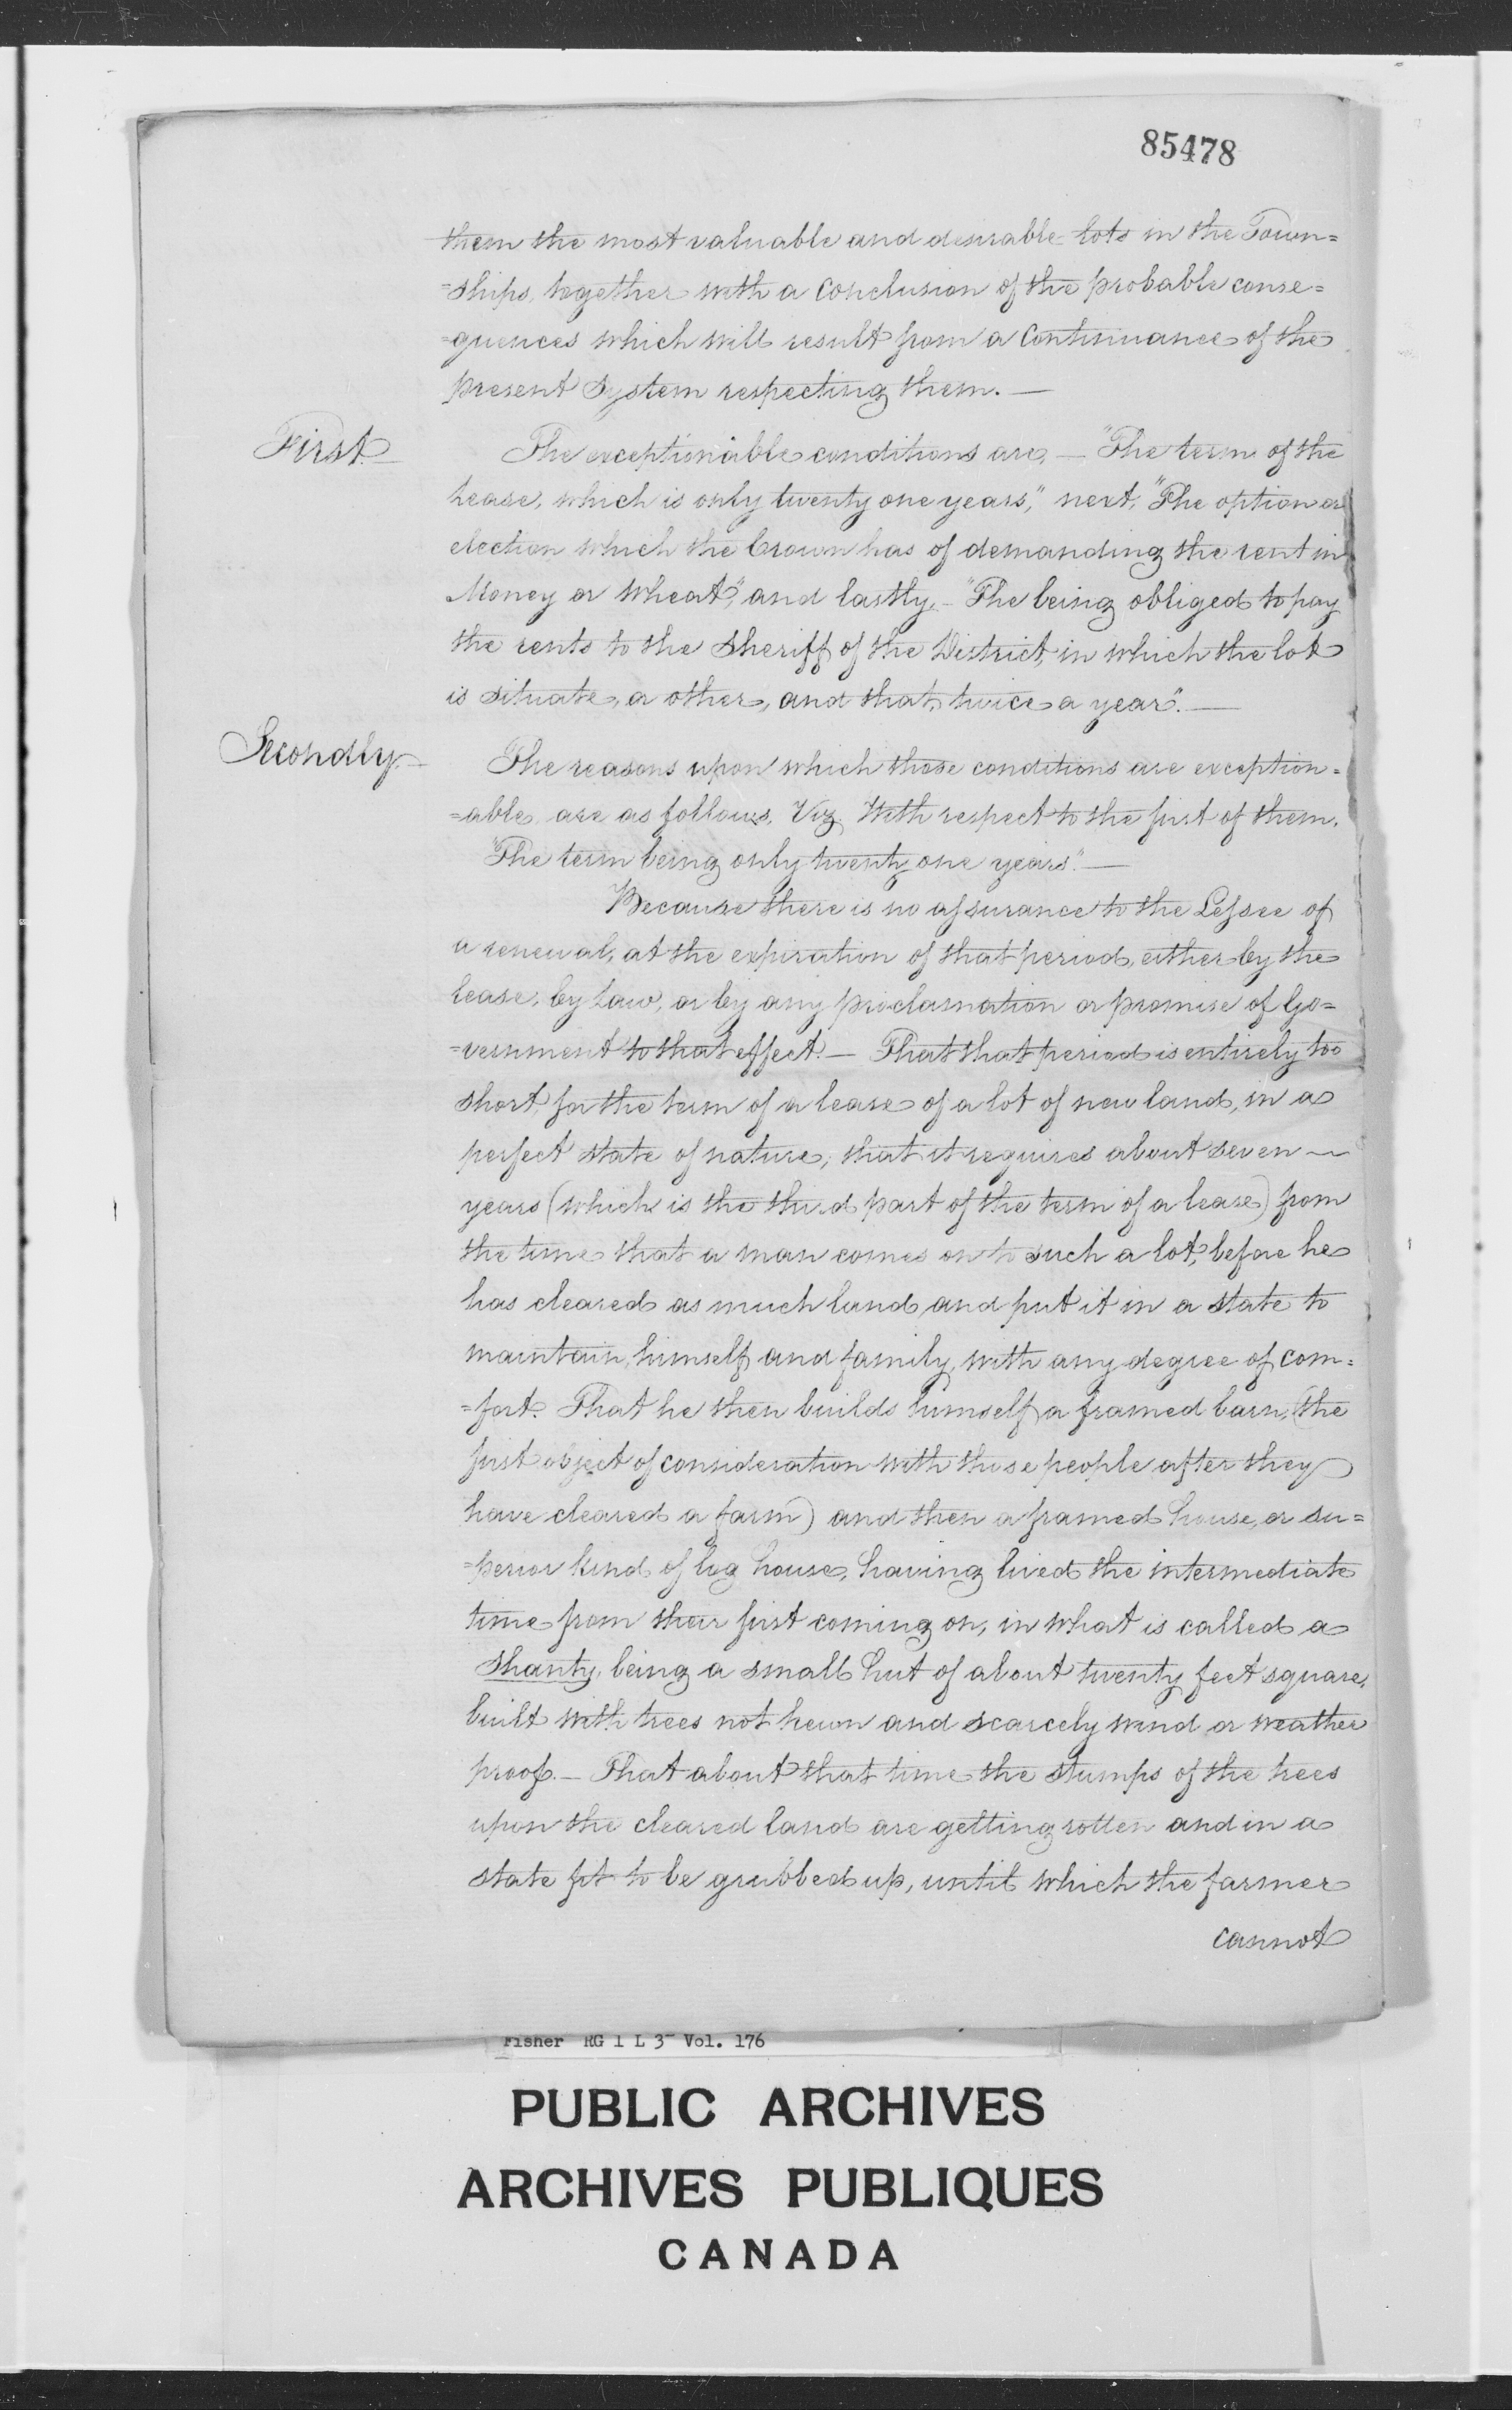 85478
them the most valuable and desirable lots in the Town=
=ships, together with a Conclusion of the probable conse=
=quences which will result from a Continuance of the
present System respecting them.—
First.—
The exceptionable conditions are,— "The term of the
lease, which is only twenty one years," next, "The option or
election which the Crown has of demanding the rent in
Money or Wheat," and lastly,— "The being obliged to pay
the rents to the Sheriff of the District, in which the lot
is situate, or other, and that, twice a year."—
Secondly.—
The reasons upon which those conditions are exception=
=able are as follows, Viz. With respect to the first of them.
"The term being only twenty one years."—
Because there is no assurance to the Lessee of
a renewal, at the expiration of that period, either by the
lease, by Law, or by any proclamation or promise of Go=
=vernment to that effect.— That that period is entirely too
short, for the term of a lease of a lot of new land, in a
perfect state of nature; that it requires about seven —
years (which is the third part of the term of a lease) from
the time that a man comes on to such a lot, before he
has cleared as much land and put it in a state to
maintain himself and family, with any degree of com=
=fort. That he then builds himself a framed barn, (the
first object of consideration with those people after they
have cleared a farm) and then a framed house, or su=
=perior kind of log house, having lived the intermediate
time from their first coming on, in what is called a
Shanty, being a small hut of about twenty feet square,
built with trees not hewn and scarcely wind or weather
proof.— That about that time the stumps of the trees
upon the cleared land are getting rotten and in a
state fit to be grubbed up, until which the farmer
cannot
Fisher RG 1 L 3 Vol. 176
PUBLIC ARCHIVES
ARCHIVES PUBLIQUES
CANADA